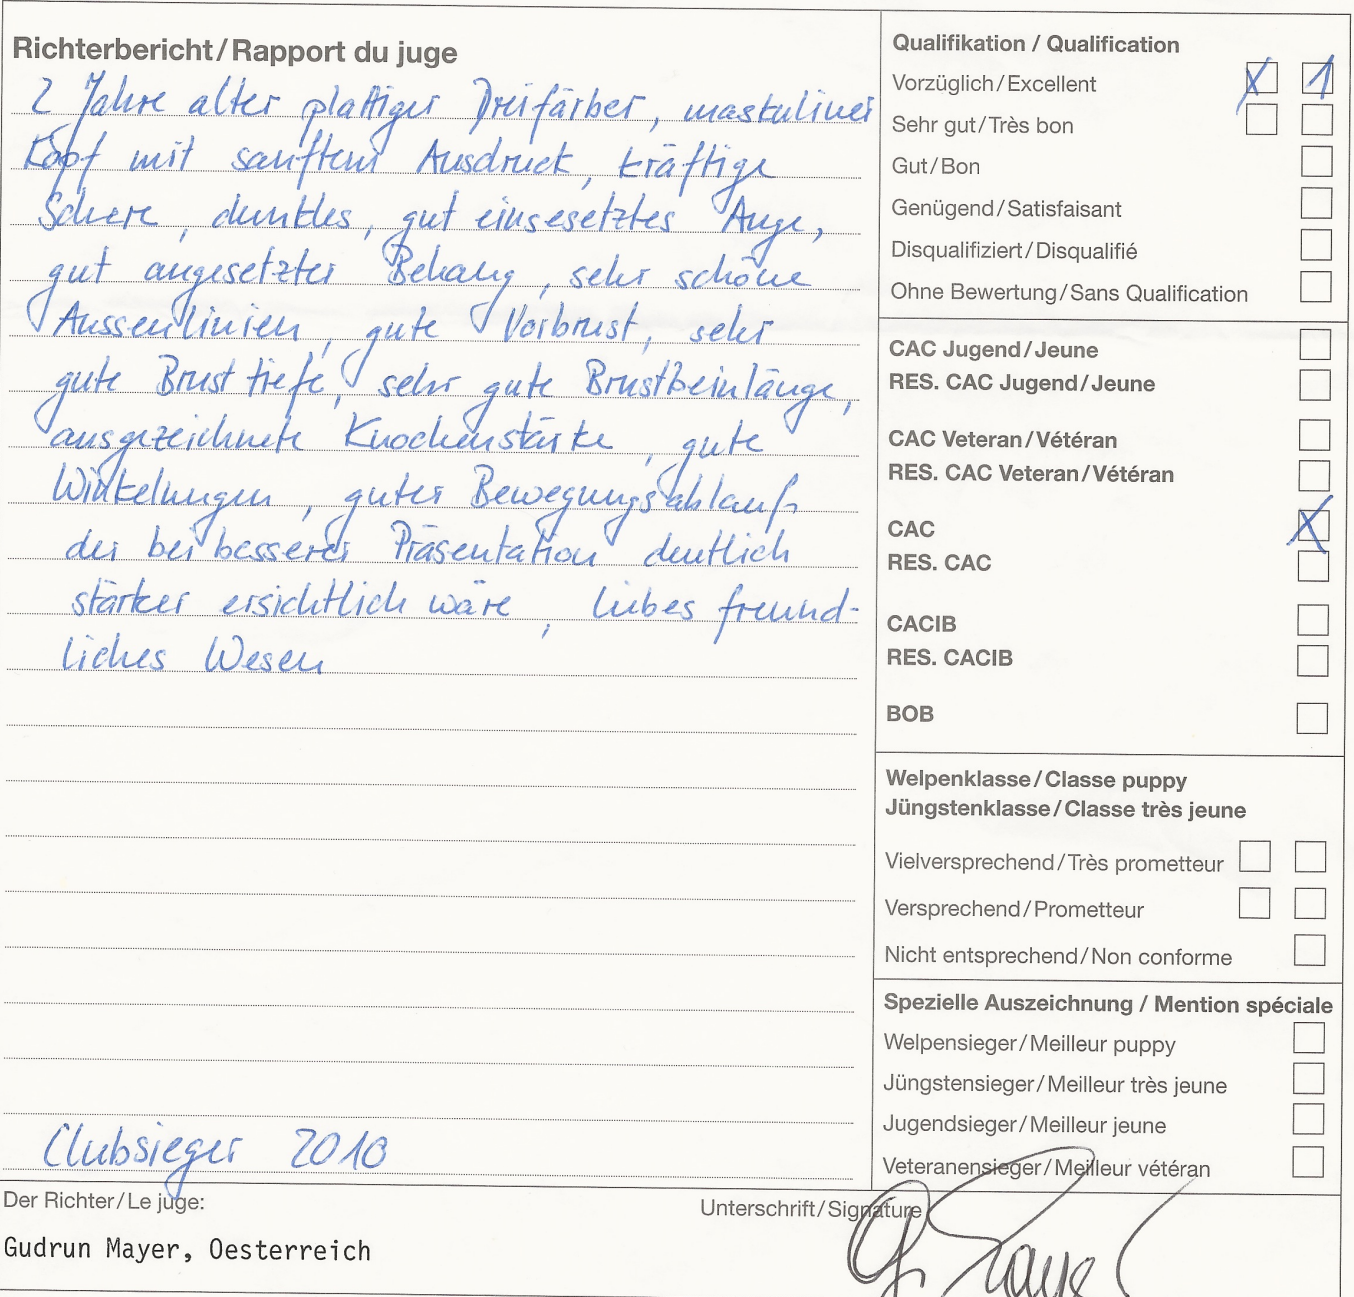 Richterbericht/Rapport du juge
2 Jahre alter plattiger Dreifärber, maskuliner
Kopf mit sanftem Ausdruck, kräftige
Schere, dunkles, gut eingesetztes Auge,
gut angesetzter Behang, sehr schöne
Aussenlinien, gute Vorbrust, sehr
gute Brusttiefe, sehr gute Brustbeinlänge,
ausgezeichnete Knochenstärke, gute
Winkelungen, guter Bewegungsablauf
der bei besserer Präsentation deutlich
stärker ersichtlich wäre, liebes freund-
liches Wesen
Clubsieger 2010
Der Richter/Le juge:
Gudrun Mayer, Oesterreich
Unterschrift/Signature
Qualifikation / Qualification
Vorzüglich/Excellent X 1
Sehr gut/Très bon
Gut/Bon
Genügend/Satisfaisant
Disqualifiziert/Disqualifié
Ohne Bewertung/Sans Qualification
CAC Jugend/Jeune
RES. CAC Jugend/Jeune
CAC Veteran/Vétéran
RES. CAC Veteran/Vétéran
CAC X
RES. CAC
CACIB
RES. CACIB
BOB
Welpenklasse/Classe puppy
Jüngstenklasse/Classe très jeune
Vielversprechend/Très prometteur
Versprechend/Prometteur
Nicht entsprechend/Non conforme
Spezielle Auszeichnung / Mention spéciale
Welpensieger/Meilleur puppy
Jüngstensieger/Meilleur très jeune
Jugendsieger/Meilleur jeune
Veteranensieger/Meilleur vétéran